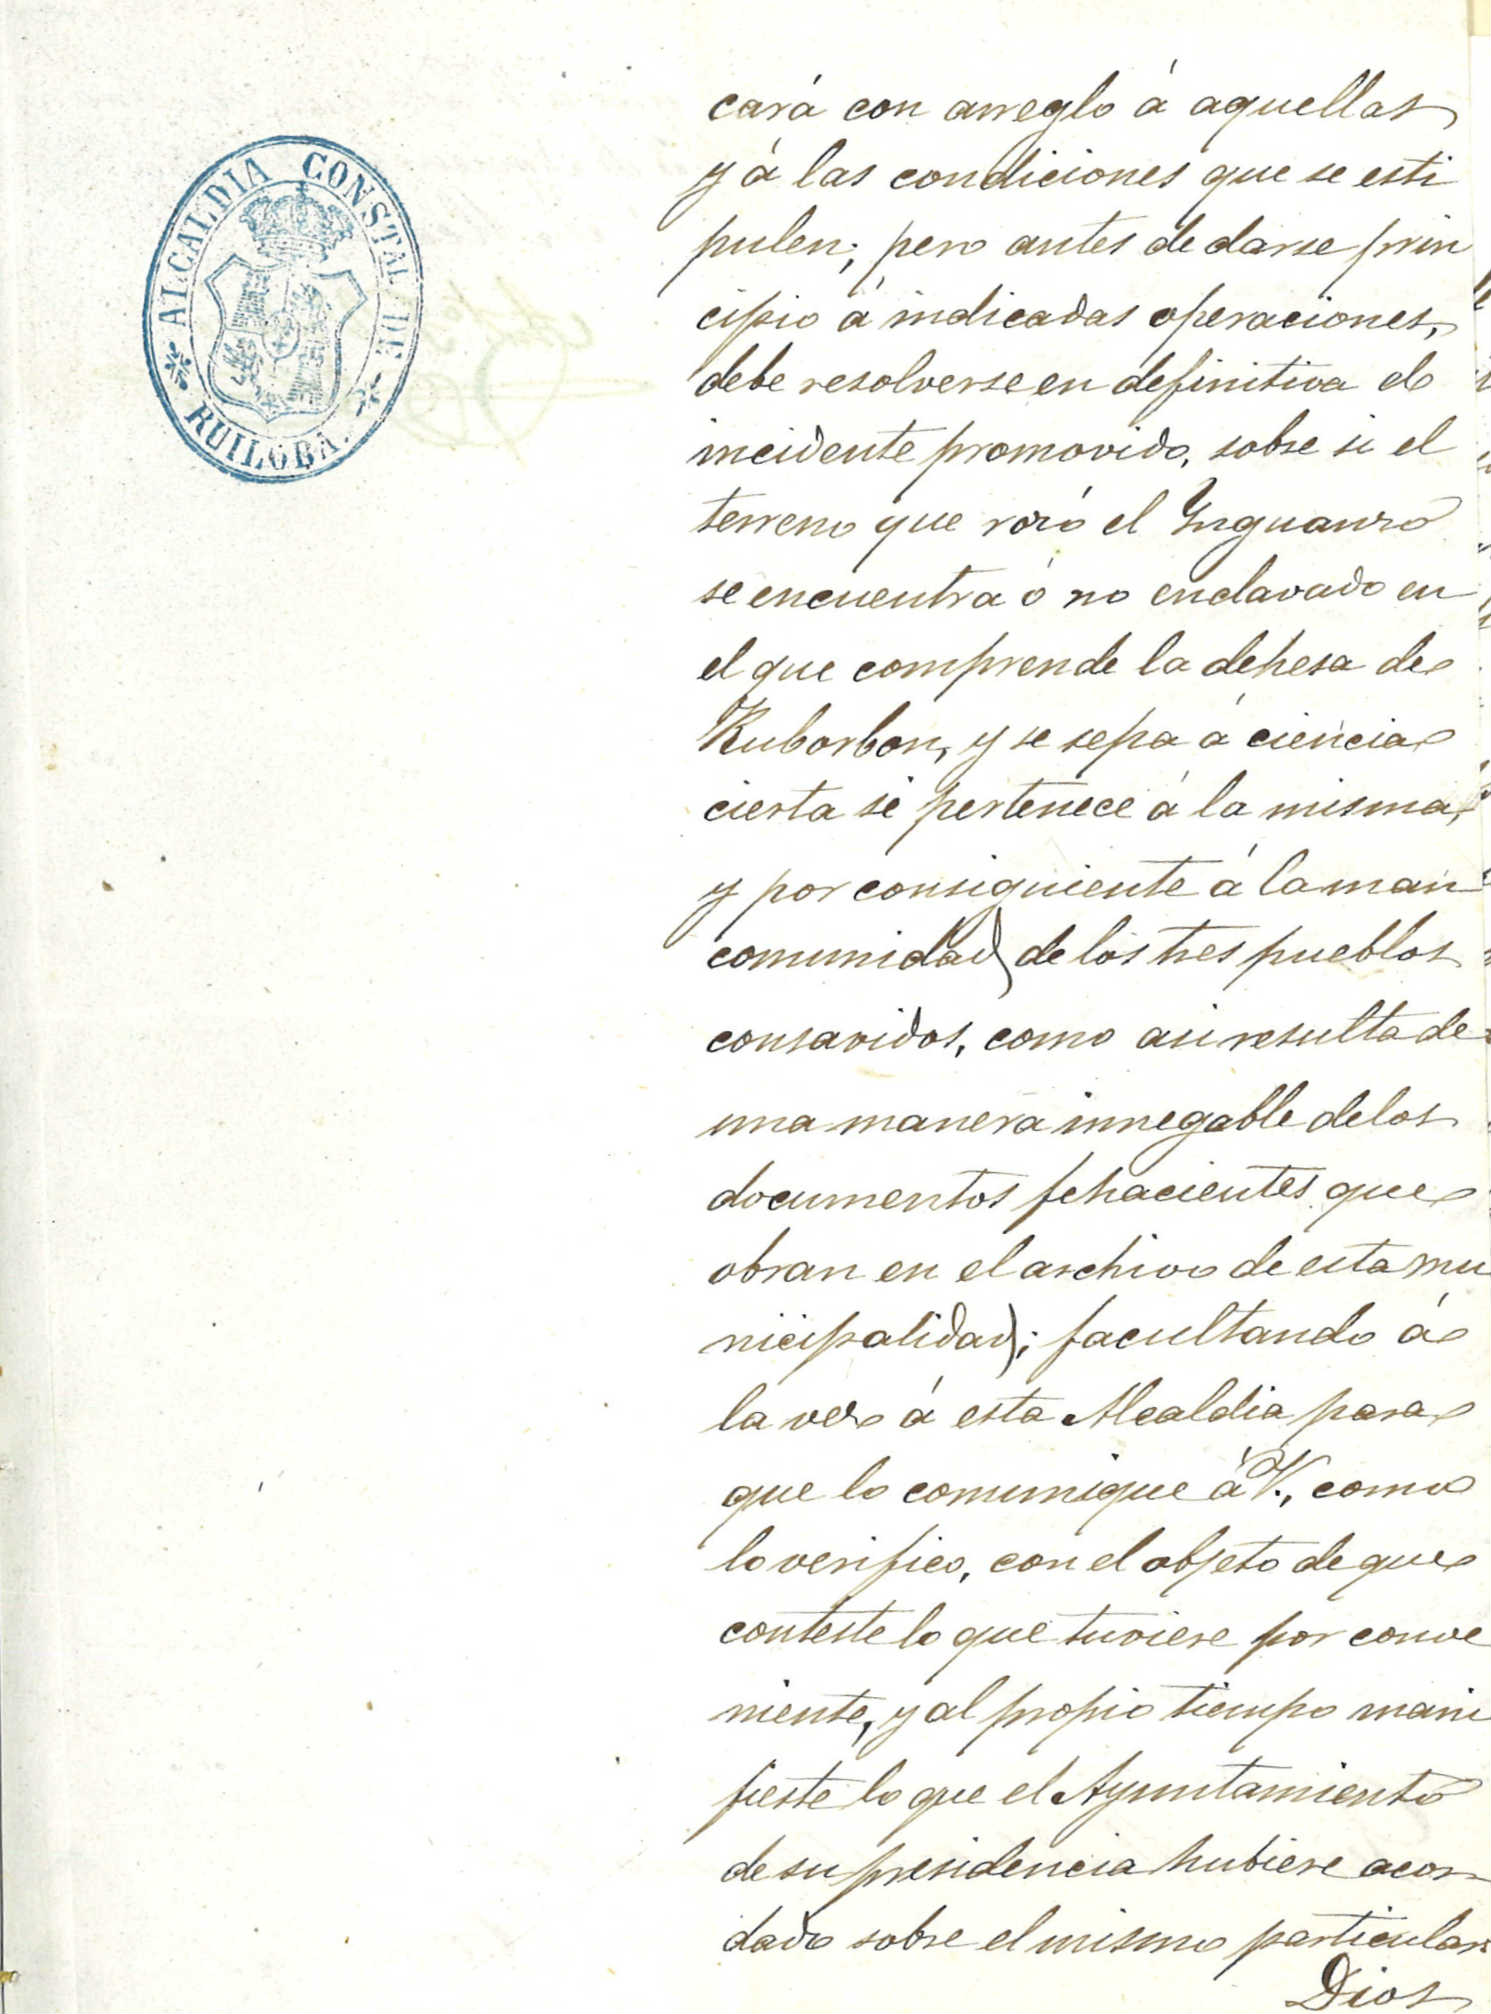 ALCALDIA CONSTAL DE
RUILOBA.
cará con arreglo á aquellas
y á las condiciones que se esti
pulen; pero antes de darse prin
cipio á indicadas operaciones,
debe resolverse en definitiva el
incidente promovido, sobre si el
terreno que rozó el Inguanzo
se encuentra ó no enclavado en
el que comprende la dehesa de
Ruborbon, y se sepa á ciencia
cierta si pertenece á la misma,
y por consiguiente á la man
comunidad de los tres pueblos
consavidos, como asi resulta de
una manera innegable de los
documentos fehacientes que
obran en el archivo de esta mu
nicipalidad; facultando á
la vez á esta Alcaldia para
que lo comunique á V., como
lo verifico, con el objeto de que
conteste lo que tuviere por conve
niente, y al propio tiempo mani
fieste lo que el Ayuntamiento
de su presidencia hubiere acor
dado sobre el mismo particular.
Dios